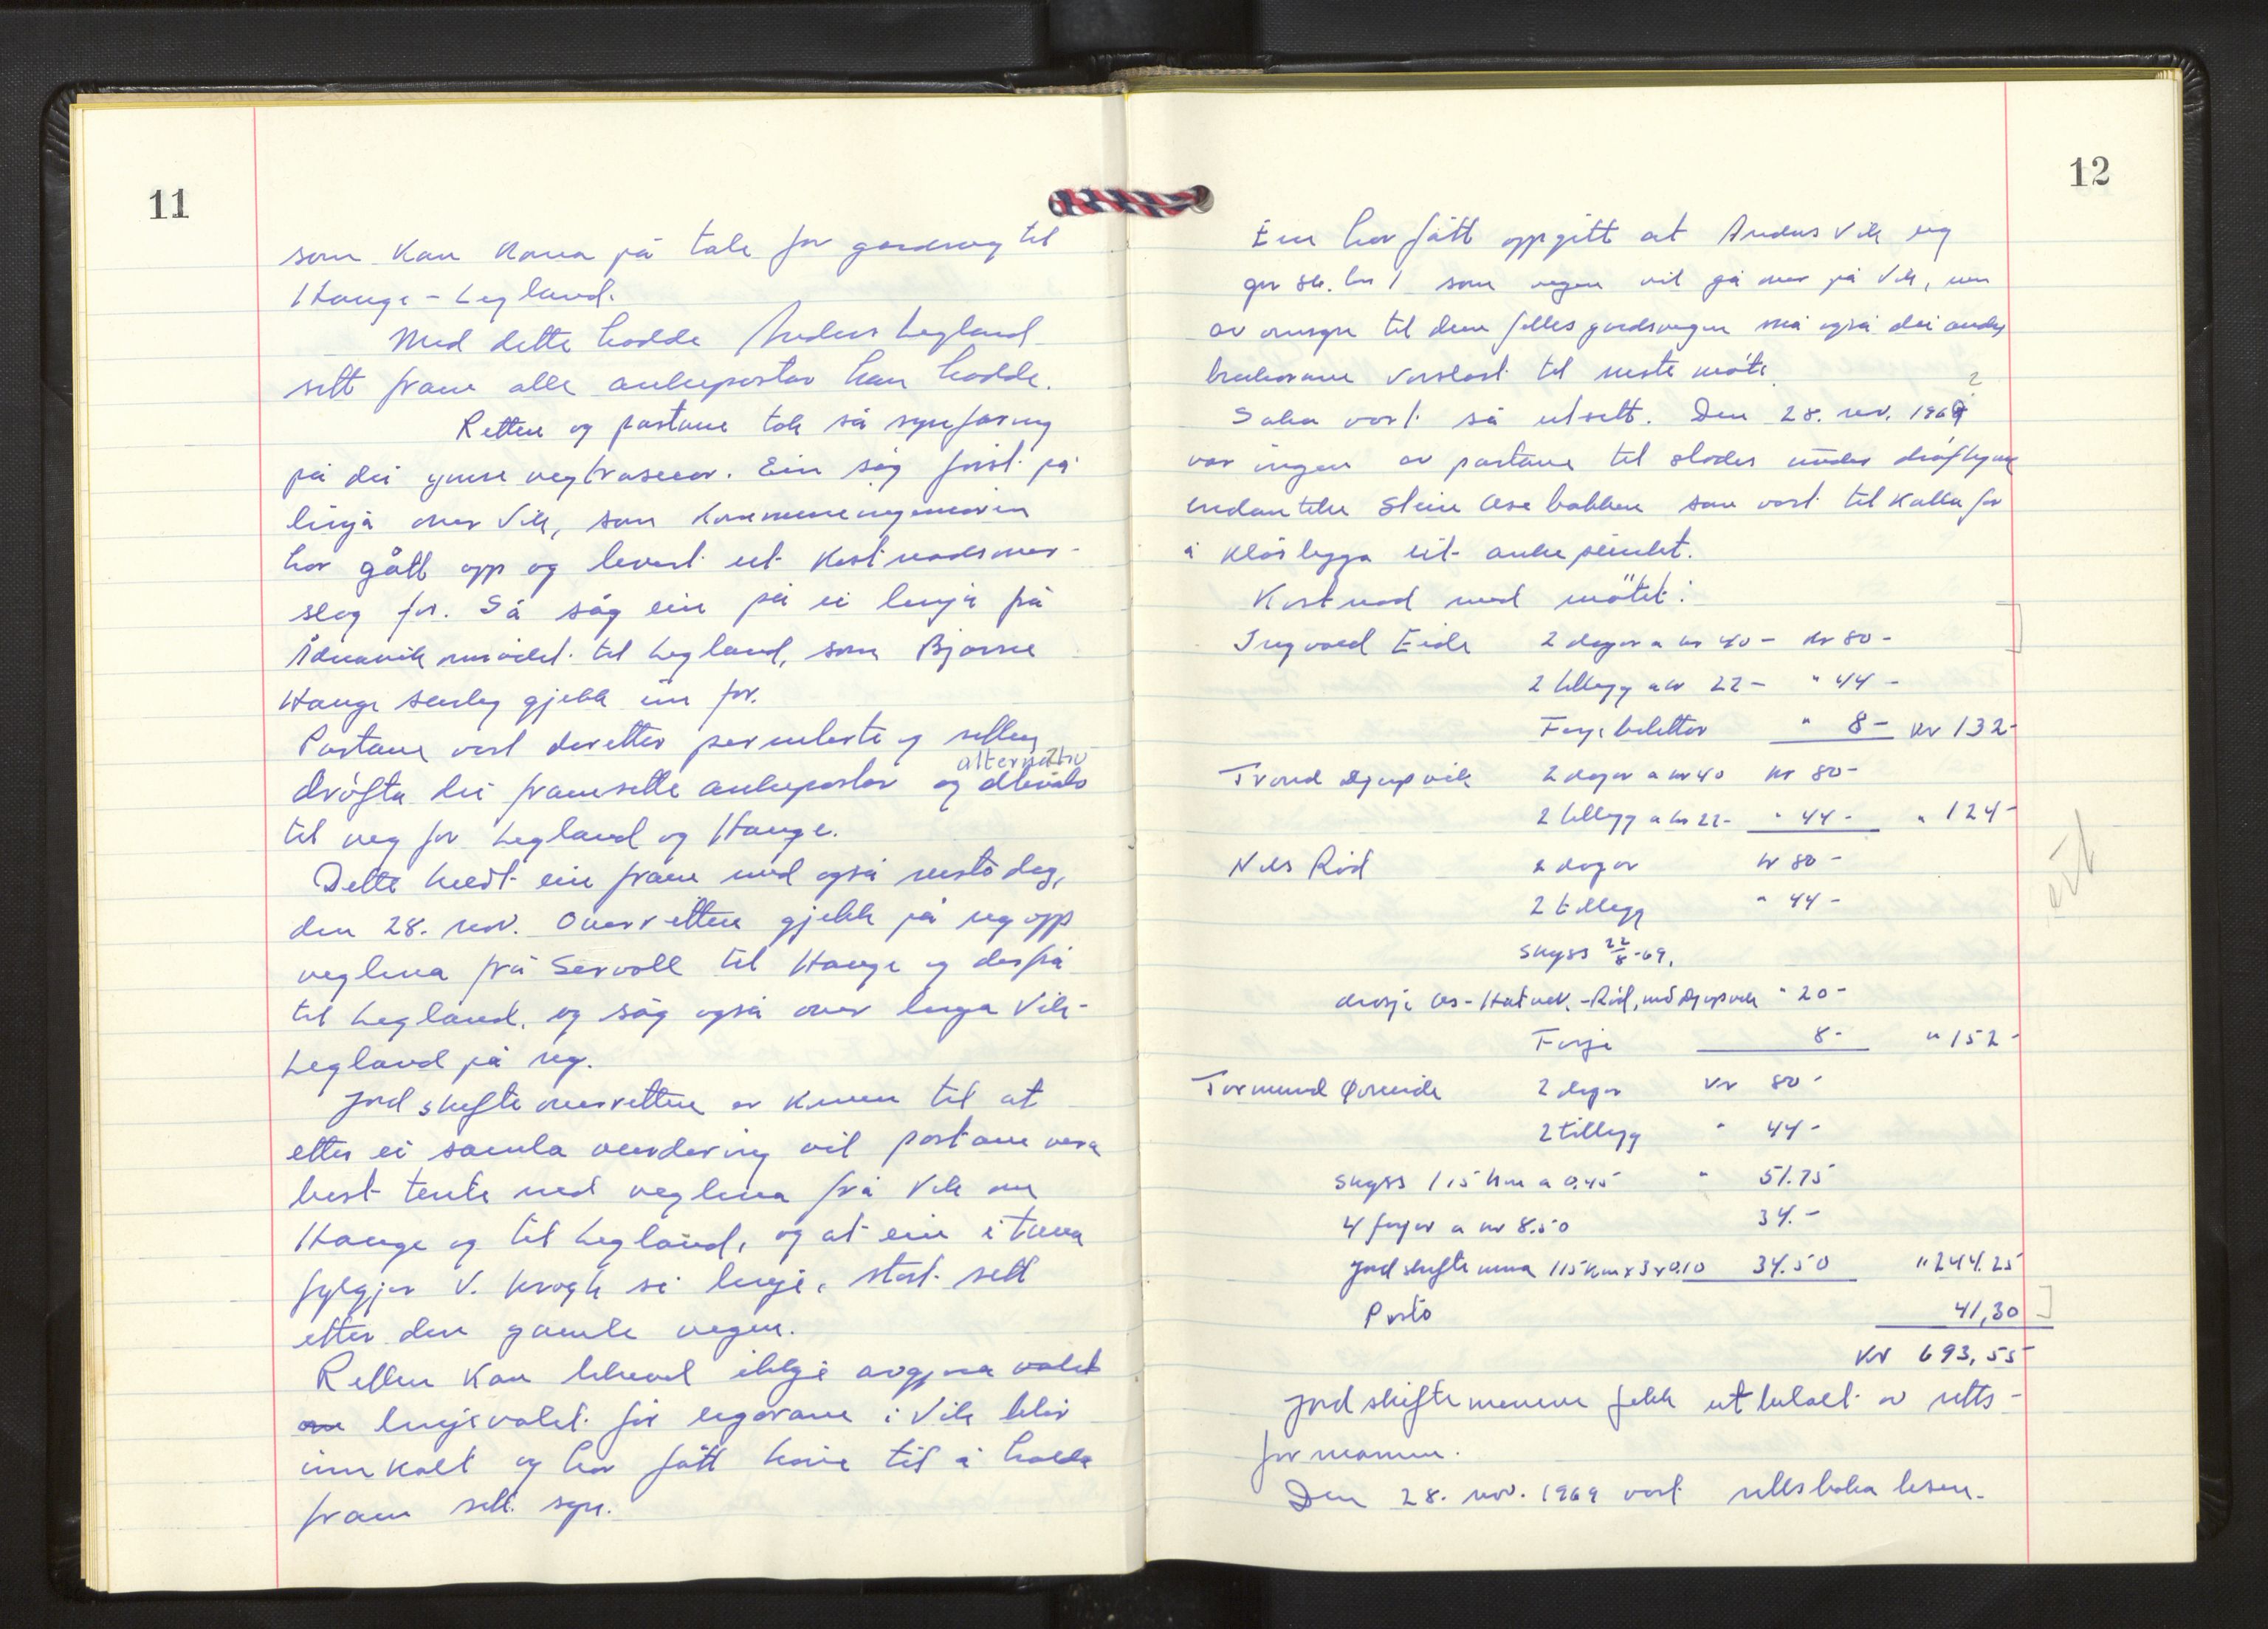 11
som kan koma på tale for gardsveg til
Hauge - Legland.
Med dette hadde Anders Legland
sett fram alle ankepostar han hadde.
Retten og partane tok så synfaring
på dei ymse vegtraseear. Ein såg først på
linja over Vik, som
har gått opp og levert ut kostnadsover-
slag for. Så såg ein på ei linja frå
Ådnavik området til Legland, som Bjarne
Hauge serleg gjekk inn for.
Partane vart deretter permiterte og retten
alternativ
drøfta dei framsette ankepostar og
til veg for Legland og Hauge.
Dette heldt ein fram med også neste dag,
den 28. nov. Overretten gjekk på ny opp
veglina frå Servoll til Hauge og derfrå
til Legland, og såg også over linja Vik-
Legland på ny.
Jordskifteoverretten er komen til at
etter ei samla vurdering vil partane vera
best tente med veglina frå Vik om
Hauge og til Legland, og at ein i tilfelle
fylgjer V. Krogh si linje, stort sett
etter den gamle vegen.
Retten kan likevel ikkje avgjera valet
linjevalet før eigarane i Vik blir
innkalt og har fått høve til å halda
fram sitt syn.
12
Ein har fått oppgitt at Anders Vik eig
gnr 86. bnr 1 som vegen vil gå over på Vik, men
av omsyn til den felles gardsvegen må også dei andre
brukarane varslast til neste møte.
2
Saka vart så utsett. Den 28. nov. 1969
var ingen av partane til stades under drøftingane
endåtil Steine Åsebakken som vart tilkalla for
å klårleggja eit ankepunkt.
Kostnad med møtet:
Ingvald Eide 2 dagar a kr 40 - kr 80 -
2 tillegg a kr 22 - " 44 -
Ferjebilettar " 8 - kr 132 -
Trond Djupvik 2 dagar a kr 40 kr 80 -
2 tillegg a kr 22 - " 44 - " 124 -
Nils Rød 2 dagar kr 80 -
2 tillegg " 44 -
Skyss 22/8-69.
drosje Os - Hatvik - Rød, m/Djupvik " 20 -
Ferje 8 - " 152 -
Tormund Øvreeide 2 dagar kr 80 -
2 tillegg " 44 -
Skyss 115 km a 0.45 " 51.75
4 ferjer a kr 8.50 34. -
Jordskiftemenn 115 km x 3 x 0.10 34.50 " 244.25
Porto 41,30
kr 693,55
Jordskiftemennene fekk utbetalt av retts-
formannen.
Den 28. nov. 1969 vart rettsboka lesen.